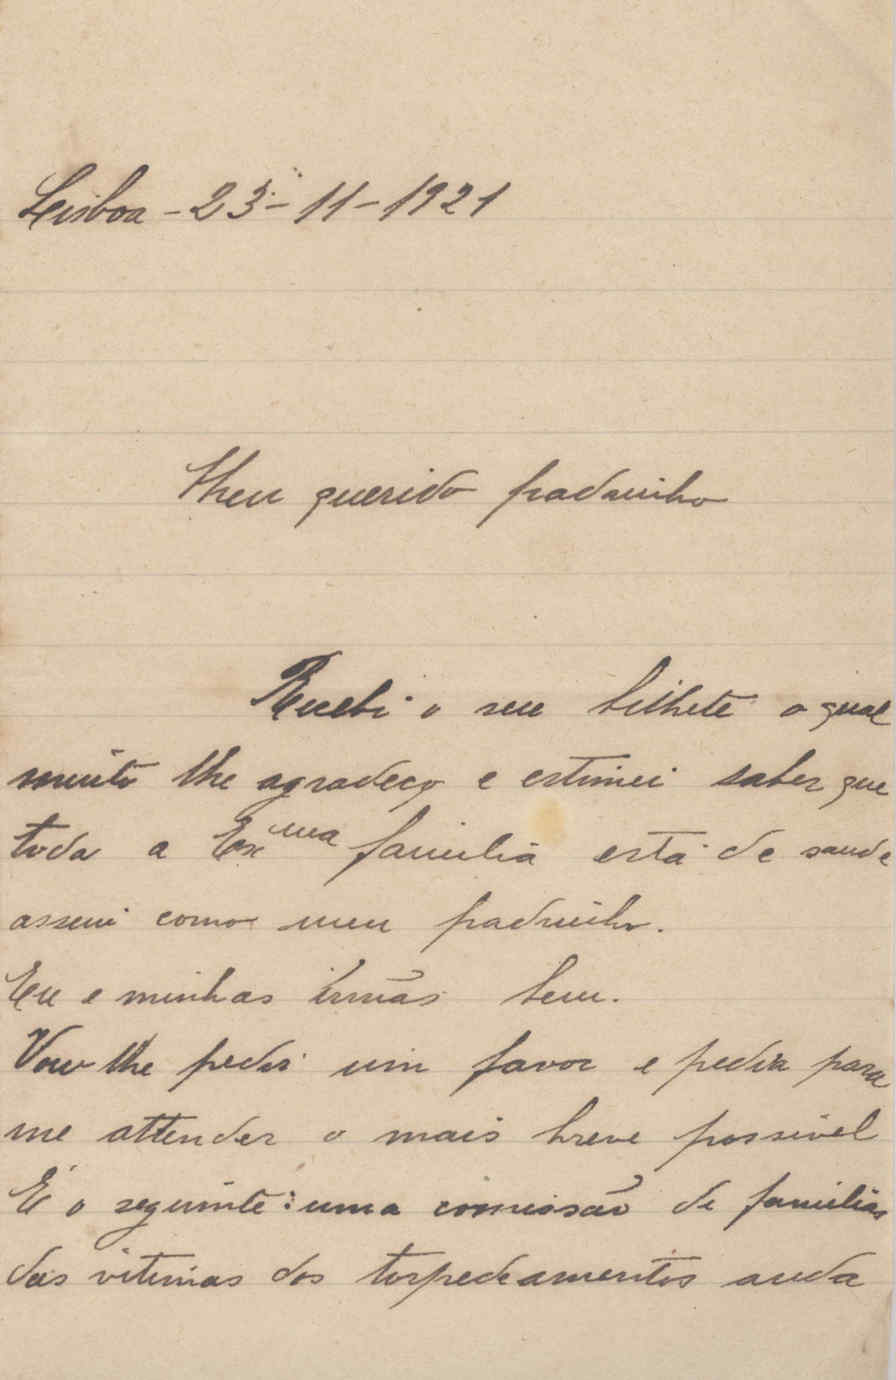 Lisboa - 23 - 11 - 1921
Meu querido padrinho
Recebi o seu bilhete o qual
muito lhe agradeço e estimei saber que
toda a Ex.ma familia está de saude
assim como meu padrinho.
Eu e minhas irmãs bem.
Vou lhe pedir um favor e pedia para
me attender o mais breve possivel
É o seguinte: uma comissão de familias
das vitimas dos torpedeamentos anda